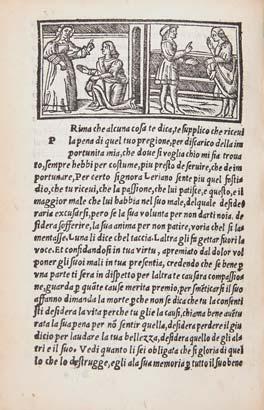 Rima che alcuna cosa te dica, te supplico che riceui
P la pena di quel tuo pregione, per discarico della im
portunita mia, che doue si voglia chio mi sia troua
to, sempre hebbi per costume, piu presto de seruire, che de im
portunare, Per certo signora Leriano sente piu quel fasti
dio, che tu riceui, che la passione, che lui patisce, e questo, e il
maggior male che lui habbia nel suo male, delquale deside
raria excusarsi, pero se la sua volunta per non darti noia. de
sidera sofferire, la sua anima per non patire, voria chel si la
mentasse. Luna li dice chel taccia. Laltra gli fa gettar fuori la
voce. Et confidandosi in tua virtu, apremiato dal dolor vol
poner gli suoi mali in tua presentia, credendo che se bene p
vna parte ti sera in dispetto per laltra te causara compassione
ne, guarda p quate cause merita premio, per smēticarsi il suo
affanno dimanda la morte p che non se dica che tu la consenti
sti desidera la vita perche tu glie la causi, chiama bene auētu
rata la sua pena per nō sentir quella, desidera perdere il giu
dicio per laudare la tua bellezza, desidera quello de gli al
tri e il suo. Vedi quanto li sei obligata che si gloria di quel
lo che lo destrugge, egli a la sua memoria p tutto il suo bene